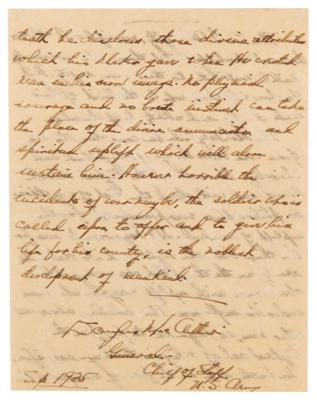 death he discloses those divine attributes
which his Maker gave when He created
man in his own image. No physical
courage and no brute instinct can take
the place of the divine annunciation and
spiritual uplift which will alone
sustain him. However horrible the
incidents of war might, the soldier who is
called upon to offer and to give his
life for his country, is the noblest
development of mankind.
Douglas MacArthur
General
Chief of Staff
U.S. Army
Sep 1935